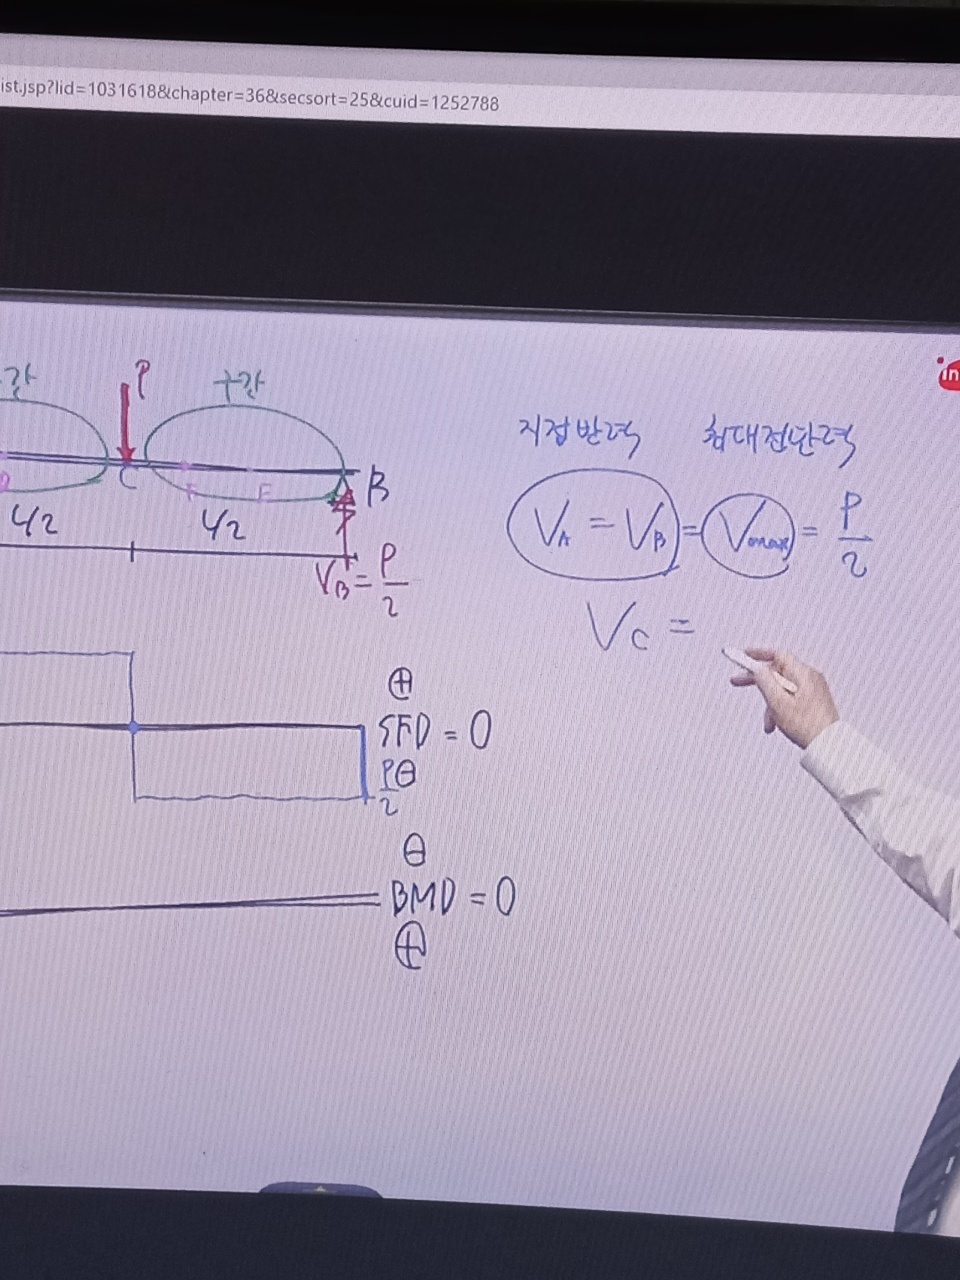 ist.jsp?lid=1031618&chapter=36&secsort=25&cuid=1252788
in
P
구간
C
B
F
E
L/2
L/2
V_B = P/2
지점반력 최대전단력
V_A = V_B = V_max = P/2
V_C =
⊕
SFD = 0
P/2 ⊖
⊖
BMD = 0
⊕